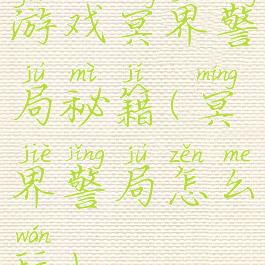 游戏冥界警
jú mì jí míng
局秘籍(冥
jiè jǐng jú zěn me
界警局怎么
wán